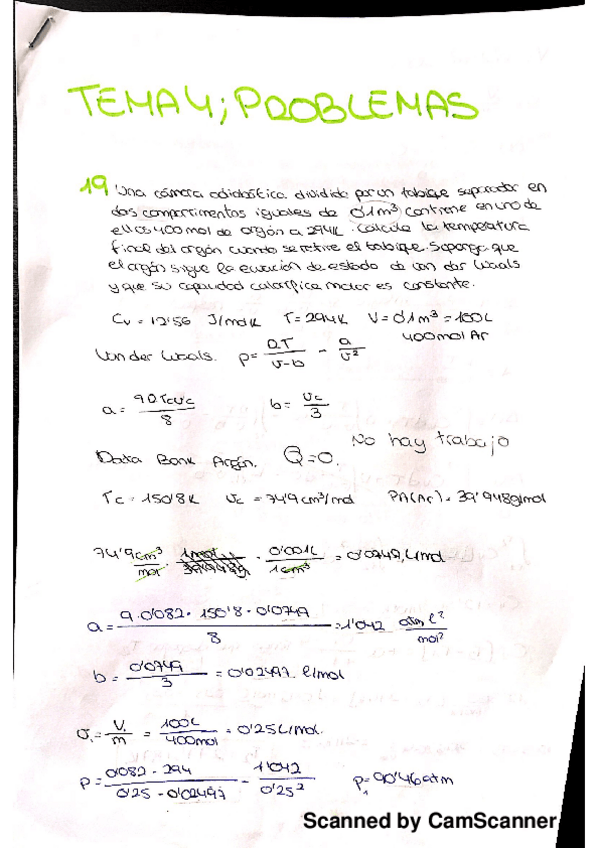 TEMA 4; PROBLEMAS
19 Una cámara adiabática dividida por un tabique separador en
dos compartimentos iguales de 0'1m³ contiene en uno de
ellos 400 mol de argón a 294K. Calcula la temperatura
final del argón cuando se retire el tabique. Suponga que
el argón sigue la ecuación de estado de van der Waals
y que su capacidad calorífica molar es constante.
Cv = 12'56 J/molK T = 294K V = 0'1m³ = 100L
400mol Ar
Van der Waals. p = RT/(v-b) - a/v²
a = 9RTcvc/8 b = vc/3
No hay trabajo
Data Bank Argón. Q=0.
Tc = 150'8K vc = 74'9cm³/mol PM(Ar) = 39'948g/mol
74'9 cm³/mol · 0'001L/1cm³ = 0'0749 L/mol
a = 9·0'082·150'8·0'0749/8 = 1'042 atm l²/mol²
b = 0'0749/3 = 0'02497 l/mol
v₁ = V₁/m = 100L/400mol = 0'25L/mol.
p = 0'082·294/(0'25-0'02497) - 1'042/0'25² p₁ = 90'46atm
Scanned by CamScanner